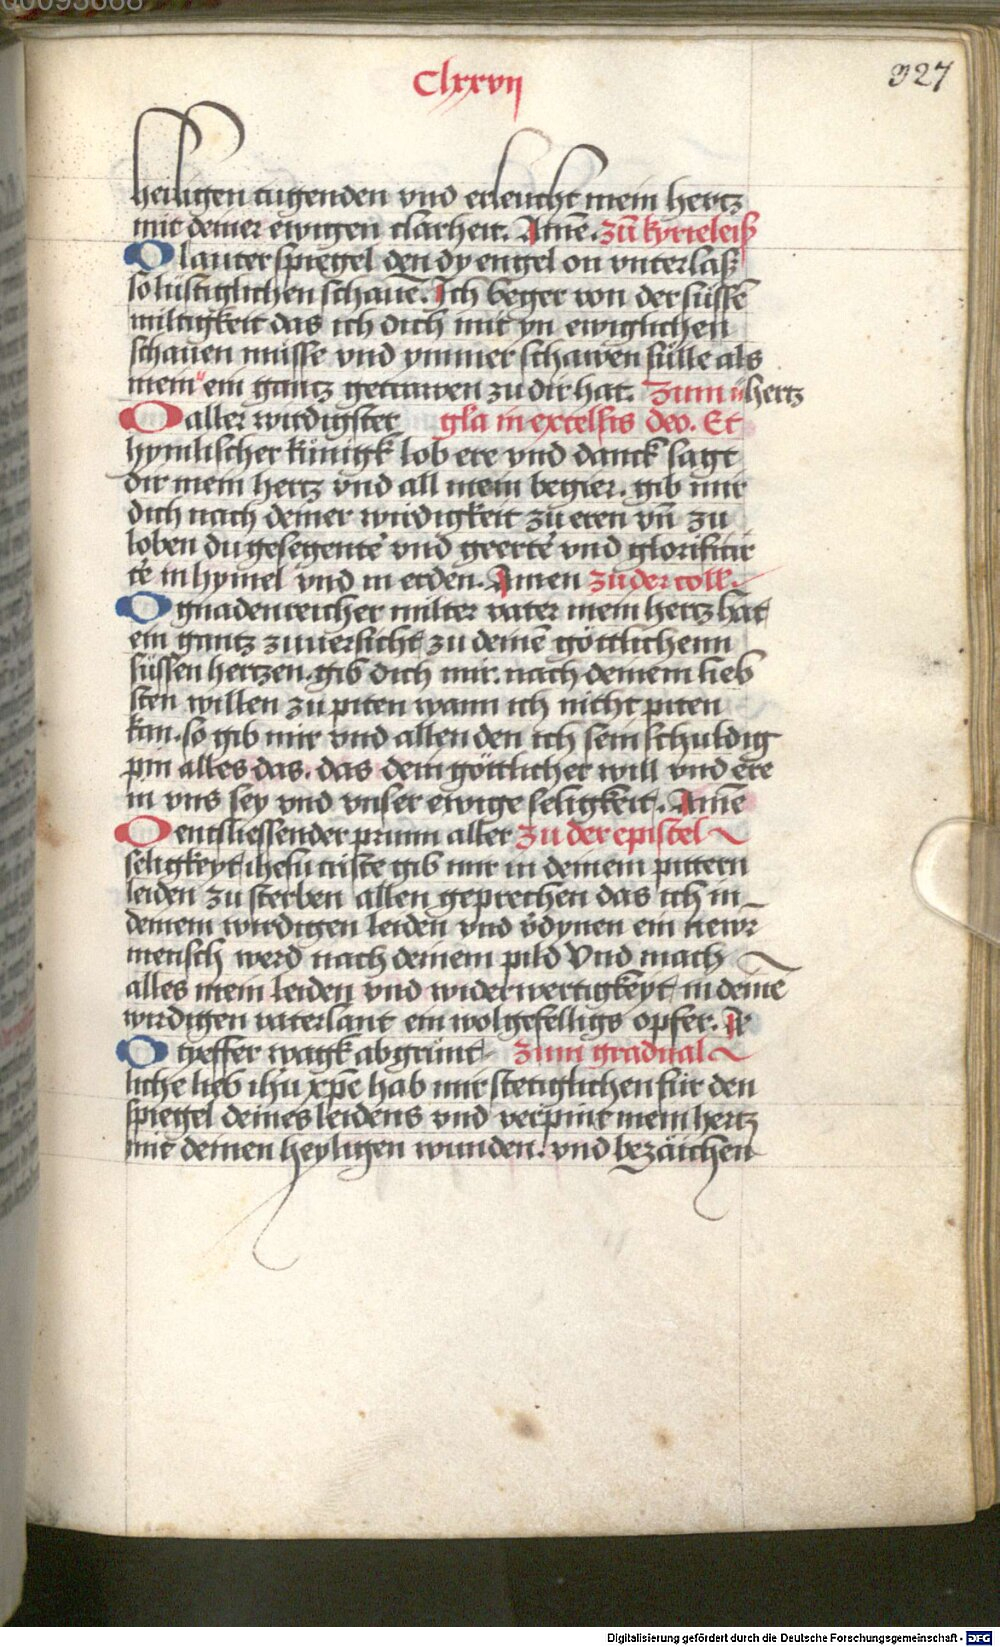 00093668
Clxxvij
327
heiligen tugenden vnd erleucht mein hertz
mit deiner ewigen clarheit. Amē. zū kyrieleiß
O lauter spiegel den dy engel on vnterlaß
so lustiglichen schauē. Ich beger von der süssē
miltigkeit das ich dich mit yn ewiglichen
schauen müsse vnd ymmer schawen sülle als
mein " ein gantz getrawen zu dir hat. Zum " hertz
O aller wirdigster gla in excelsis deo. Et
hymlischer künigk lob ere vnd danck sagt
dir mein hertz vnd all mein begier. gib mir
dich nach deiner wirdigkeit zu eren vn̄ zu
loben du gesegentē vnd geertē vnd glorificir
tē in hymel vnd in erden. Amen zu der coll.
O gnadenreicher milter vater mein hertz hat
ein gantz zuuersicht zu deinē göttlichenn
süssen hertzen. gib dich mir. nach deinem lieb
sten willen zu piten wann ich nicht piten
kan. so gib mir vnd allen den ich sein schuldig
pin alles das. das dein göttlicher will vnd ere
in vns sey vnd vnser ewige seligkeit. Amē
O entsliessender prunn aller zu der epistel
seligkeyt ihesu criste gib mir in deinem pittern
leiden zu sterben allen geprechen das ich in
deinem wirdigen leiden vnd vͦdynen ein newr
mensch werd nach deinem pild Vnd mach
alles mein leiden vnd widerwertigkeyt in deinē
wirdigen vaterlant ein wolgefelligs opfer. A
O tyeffer wagk abgrünt zum gradual
liche lieb ihu xpē hab mir stetiglichen für den
spiegel deines leidens vnd verpint mein hertz
mit deinen heyligen wunden. vnd bezaichen
Digitalisierung gefördert durch die Deutsche Forschungsgemeinschaft - DFG